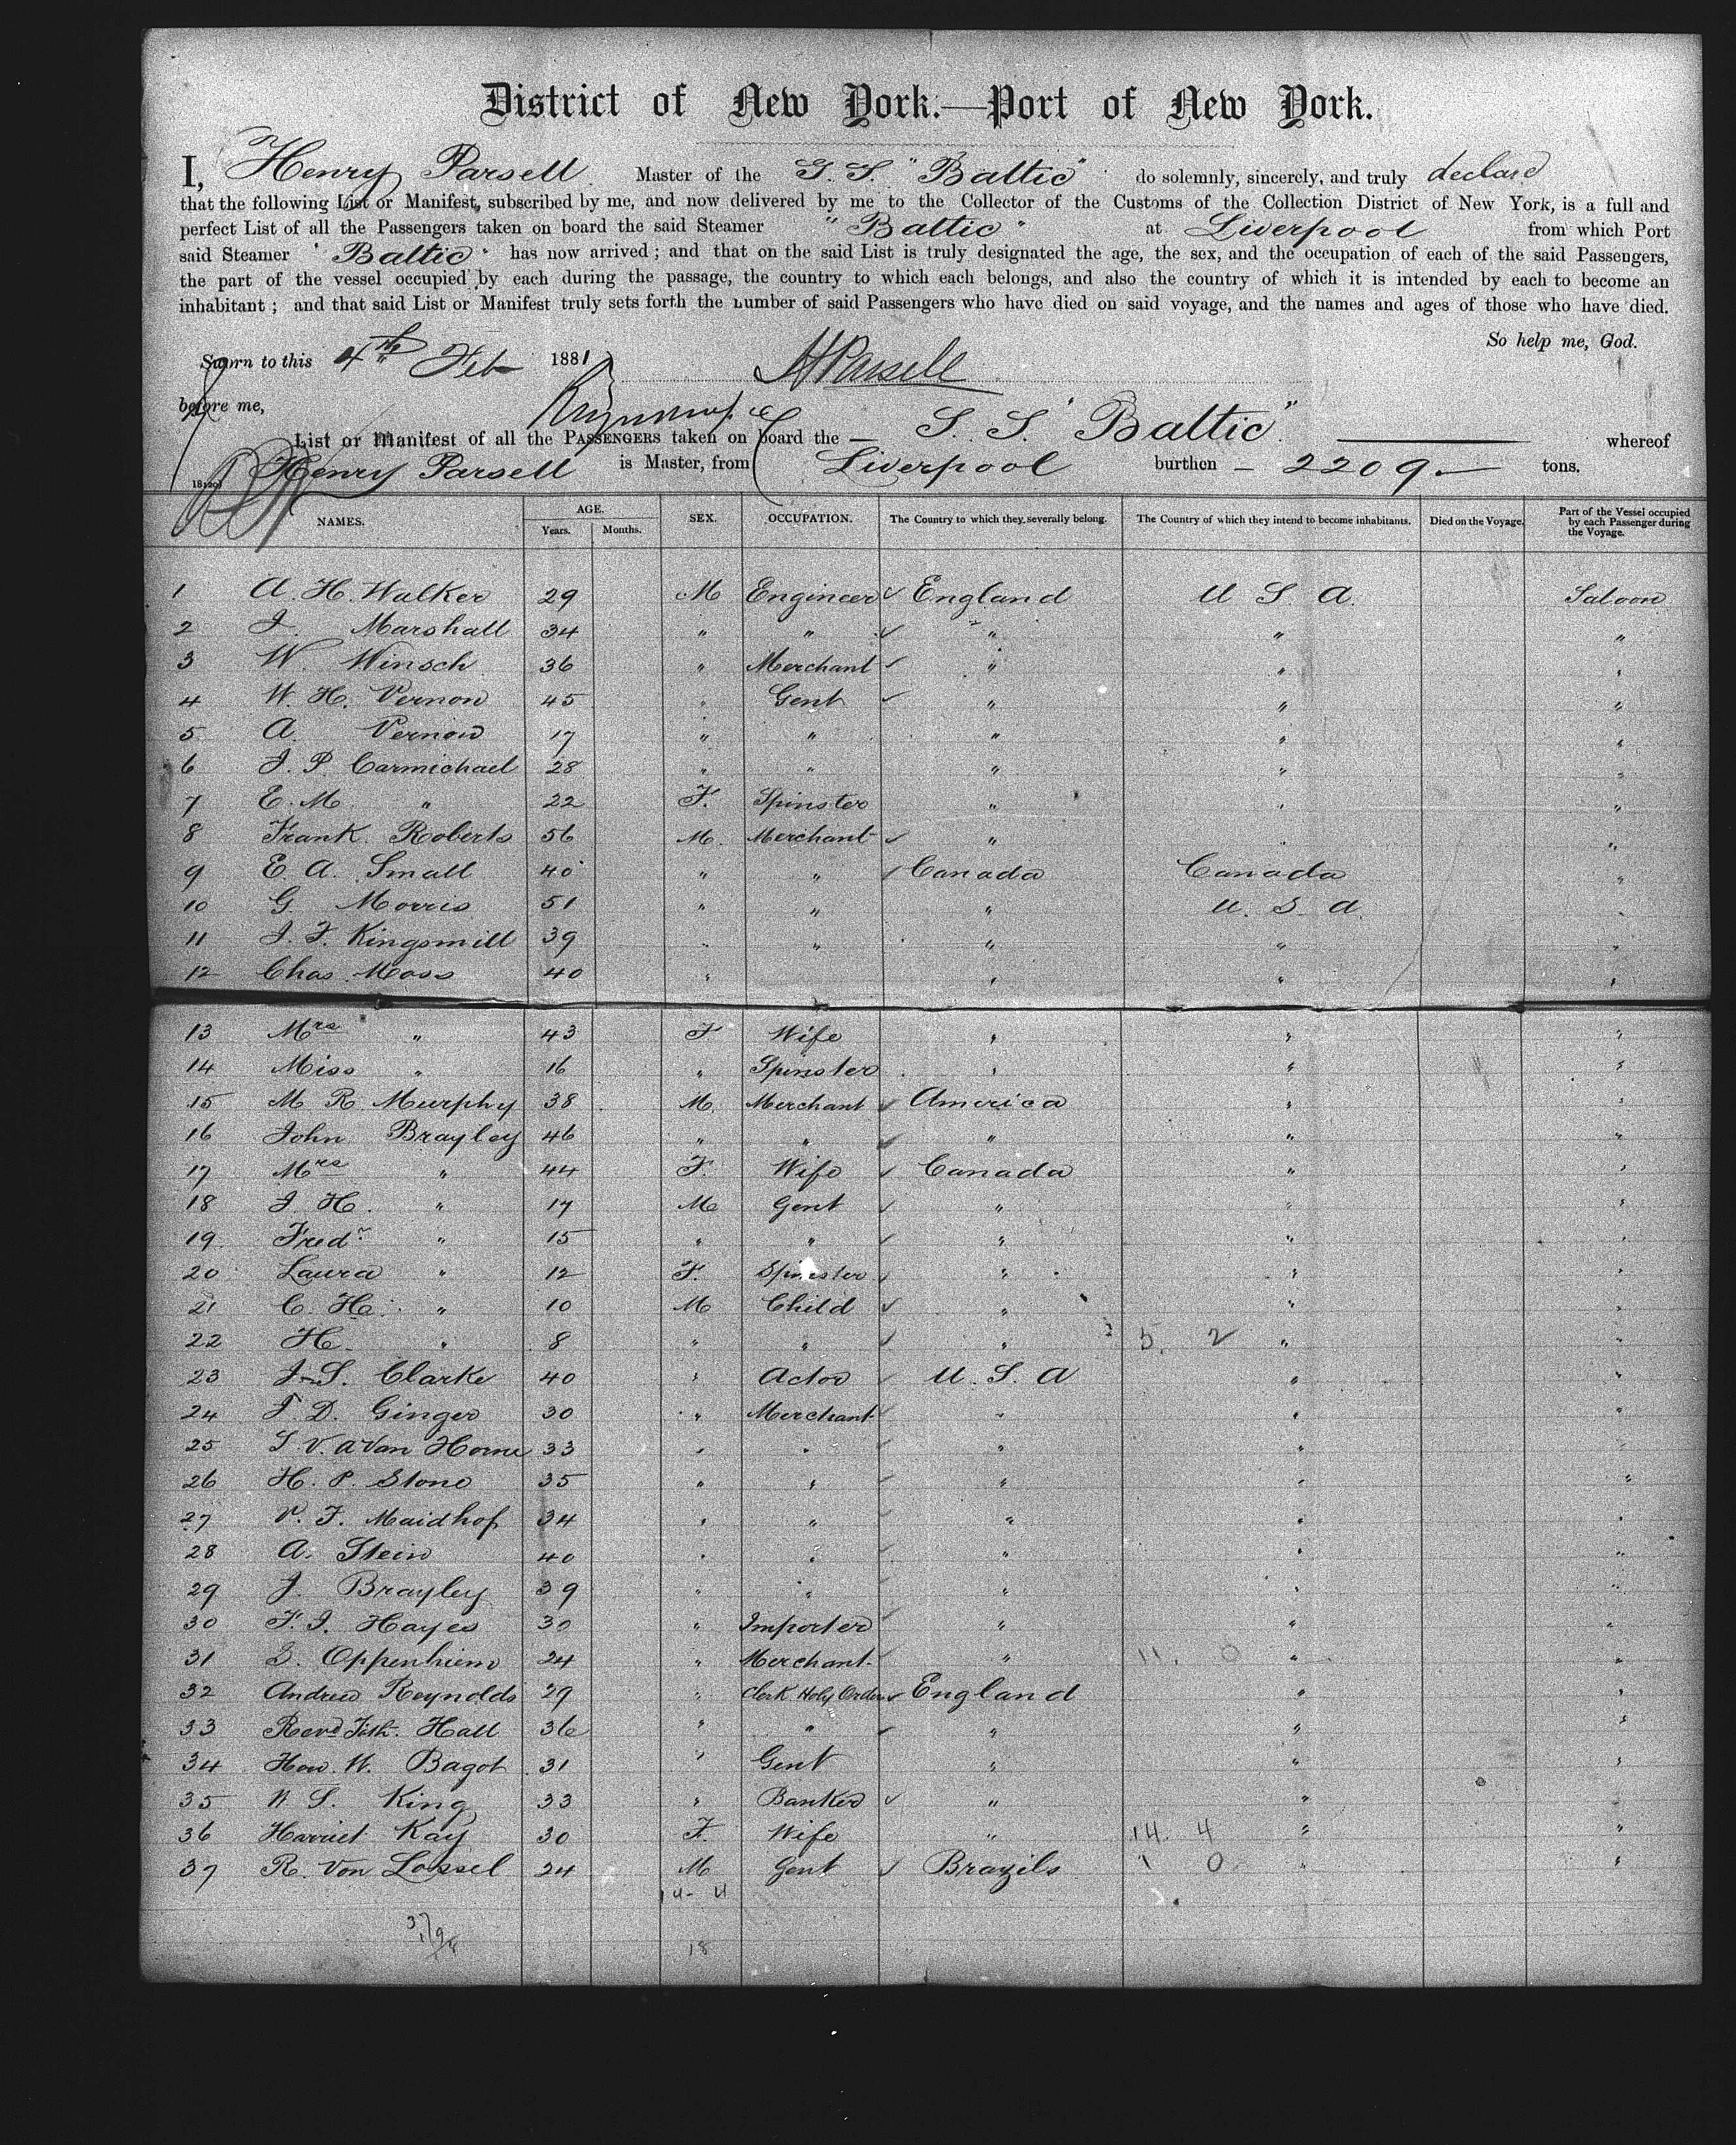 District of New York.—Port of New York.
I, Henry Parsell Master of the S. S. "Baltic" do solemnly, sincerely, and truly declare
that the following List or Manifest, subscribed by me, and now delivered by me to the Collector of the Customs of the Collection District of New York, is a full and
perfect List of all the Passengers taken on board the said Steamer "Baltic" at Liverpool from which Port
said Steamer "Baltic" has now arrived; and that on the said List is truly designated the age, the sex, and the occupation of each of the said Passengers,
the part of the vessel occupied by each during the passage, the country to which each belongs, and also the country of which it is intended by each to become an
inhabitant; and that said List or Manifest truly sets forth the number of said Passengers who have died on said voyage, and the names and ages of those who have died.
So help me, God.
Sworn to this 4th Feb 1881 HParsell
before me,
List or Manifest of all the PASSENGERS taken on board the — S. S. "Baltic" — whereof
Henry Parsell is Master, from Liverpool burthen — 2209 — tons.
NAMES. AGE. Years. Months. SEX. OCCUPATION. The Country to which they severally belong. The Country of which they intend to become inhabitants. Died on the Voyage. Part of the Vessel occupied by each Passenger during the Voyage.
1 A. H. Walker 29 M Engineer ✓ England U S A. Saloon
2 J. Marshall 34 " " ✓ " " "
3 W. Winsch 36 " Merchant ✓ " " "
4 W. H. Vernon 45 " Gent ✓ " " "
5 A. Vernon 17 " " " " "
6 J. P. Carmichael 28 " " " " "
7 E. M. " 22 F. Spinster " " "
8 Frank Roberts 56 M. Merchant ✓ " " "
9 E. A. Small 40 " " ✓ Canada Canada "
10 G. Morris 51 " " " U. S. A. "
11 J. F. Kingsmill 39 " " " " "
12 Chas. Moss 40 " " " "
13 Mrs " 43 F Wife " " "
14 Miss " 16 " Spinster " " "
15 M. R. Murphy 38 M. Merchant ✓ America " "
16 John Brayley 46 " " ✓ " " "
17 Mrs " 44 F. Wife ✓ Canada " "
18 J. H. " 17 M Gent ✓ " " "
19 Fredr " 15 " " ✓ " " "
20 Laura " 12 F. Spinster ✓ " " "
21 C. H. " 10 M Child ✓ " " "
22 H. " 8 " " ✓ " 5. 2 " "
23 J. S. Clarke 40 " Actor ✓ U. S. A " "
24 F. D. Ginger 30 " Merchant ✓ " " "
25 S. V. A Van Horne 33 " " ✓ " " "
26 H. P. Stone 35 " " ✓ " " "
27 V. F. Maidhof 34 " " ✓ " " "
28 A. Stein 40 " " ✓ " " "
29 J. Brayley 39 " " ✓ " " "
30 F. J. Hayes 30 " Importer ✓ " " "
31 S. Oppenhiem 24 " Merchant ✓ " 11. 0 " "
32 Andrew Reynolds 29 " Clerk Holy Orders ✓ England " "
33 Revd Hall 36 " " ✓ " " "
34 Hon. W. Bagot 31 " Gent " " "
35 W S. King 33 " Banker ✓ " " "
36 Harriet Kay 30 F. Wife " 14. 4 " "
37 R. Von Lossel 24 M Gent ✓ Brazils 1 0 " "
14- 4
18